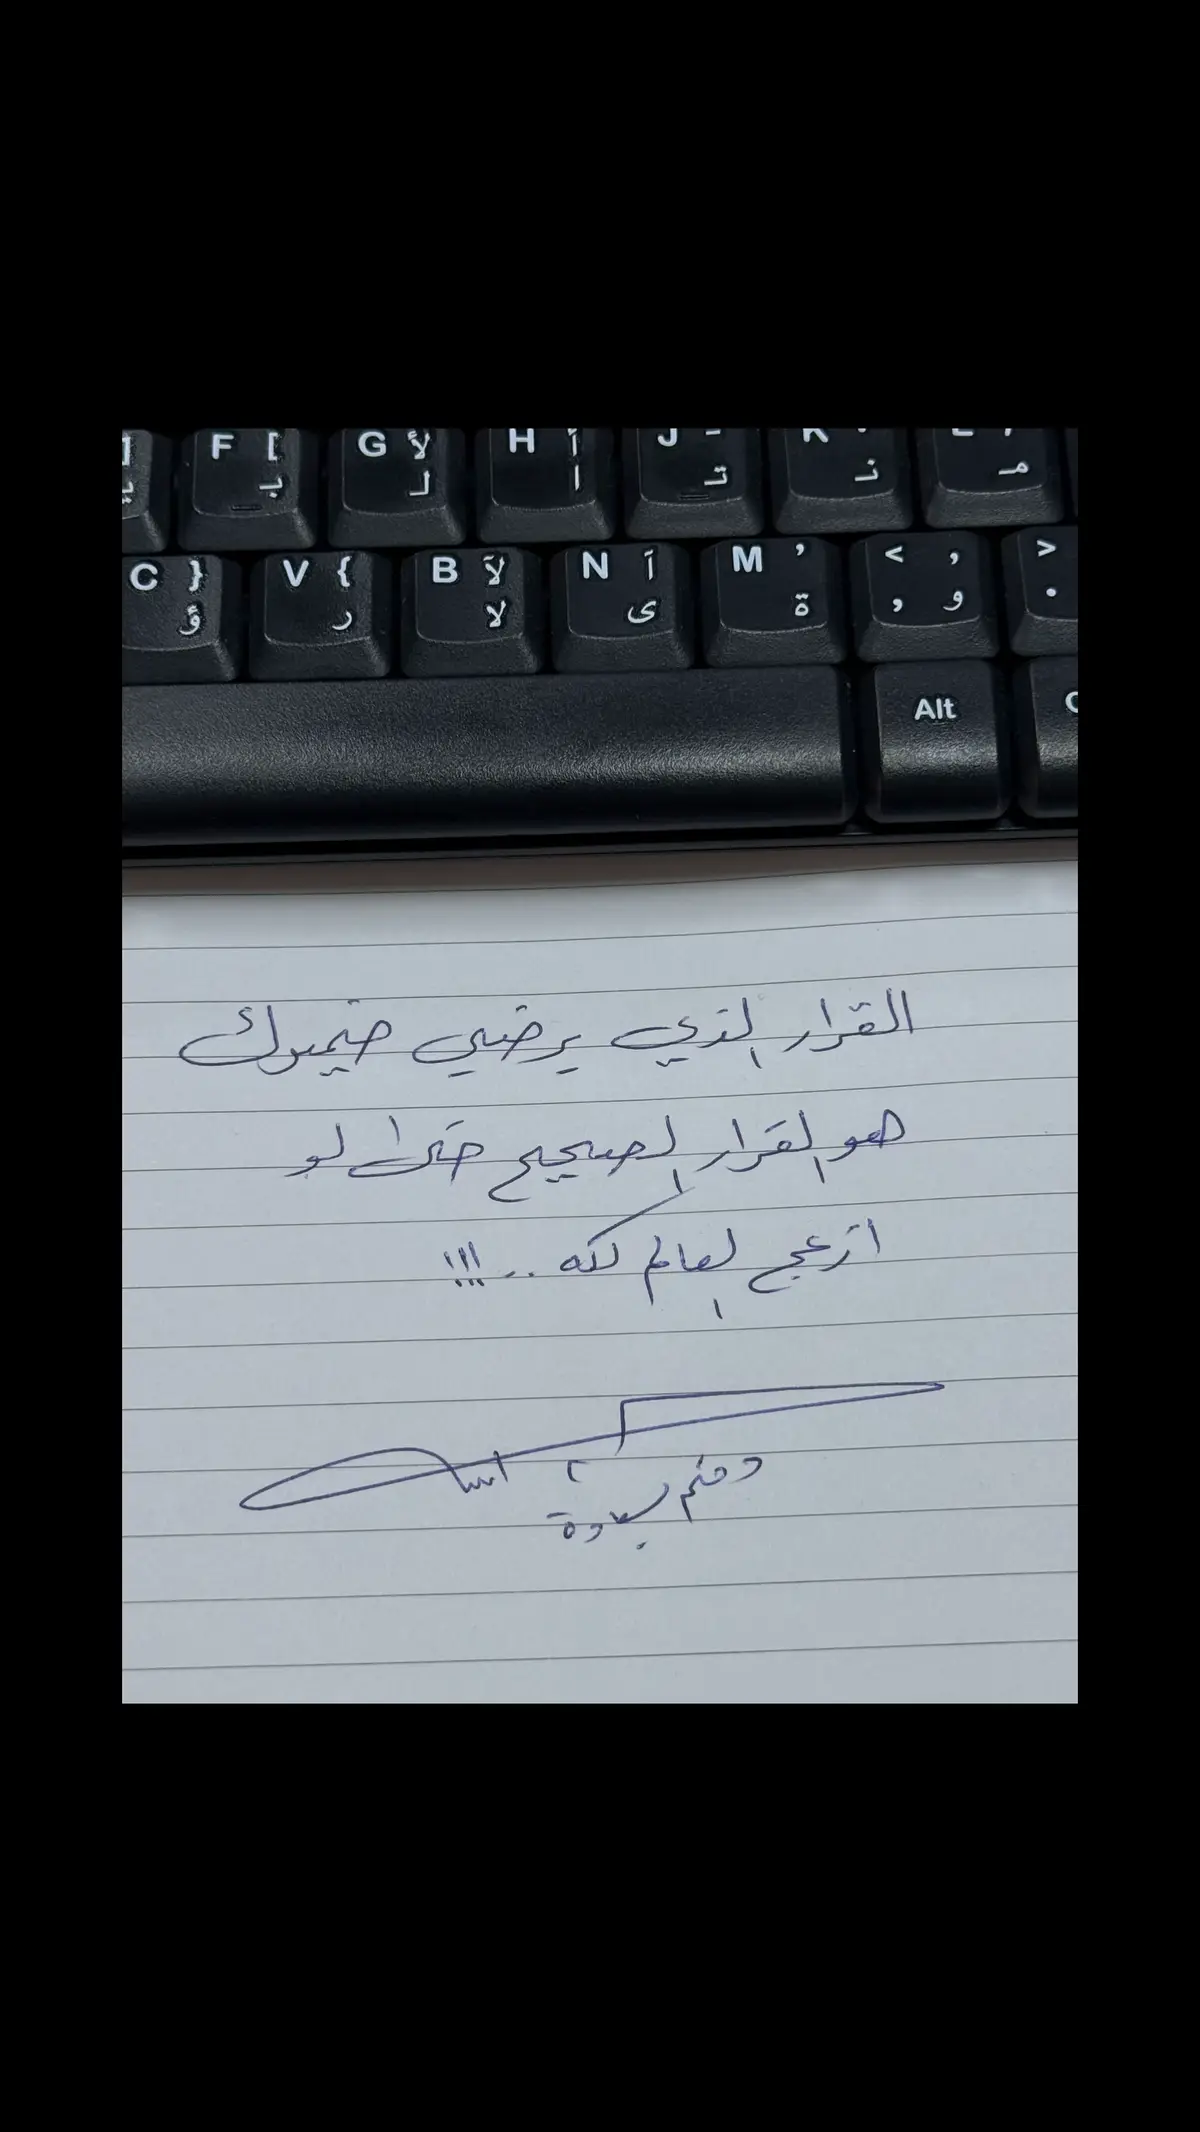 ] ي
F [ ب
G لأ ل
H أ ا
J ـ ت
K ن
L م
C } ؤ
V { ر
B لآ لا
N آ ى
M ’ ة
< , , و
> .
Alt
القرار الذي يرضي ضميرك
هو القرار الصحيح حتى لو
ازعج العالم كله .. !!!
دمتم بسعادة